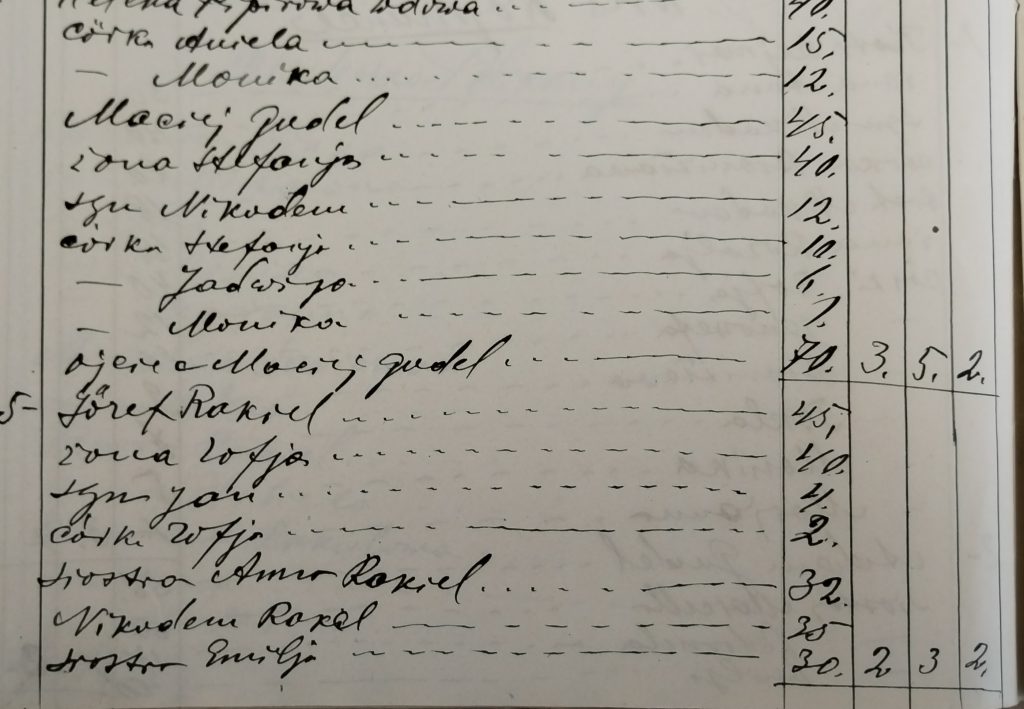 Helena wdowa 40.
córka Aniela 15.
— Monika 12.
Maciej Gudel 45.
żona Stefanja 40.
syn Nikodem 12.
córka Stefanja 10.
— Jadwiga 6.
— Monika
ojciec Maciej Gudel 70. 3. 5. 2.
5 - Józef Rakiel 45.
żona Zofja 40.
syn Jan 4.
córk. Zofja 2.
siostra Anna Rakiel 32.
Nikodem Rakel 35
siostra Emilja 30. 2 3 2.